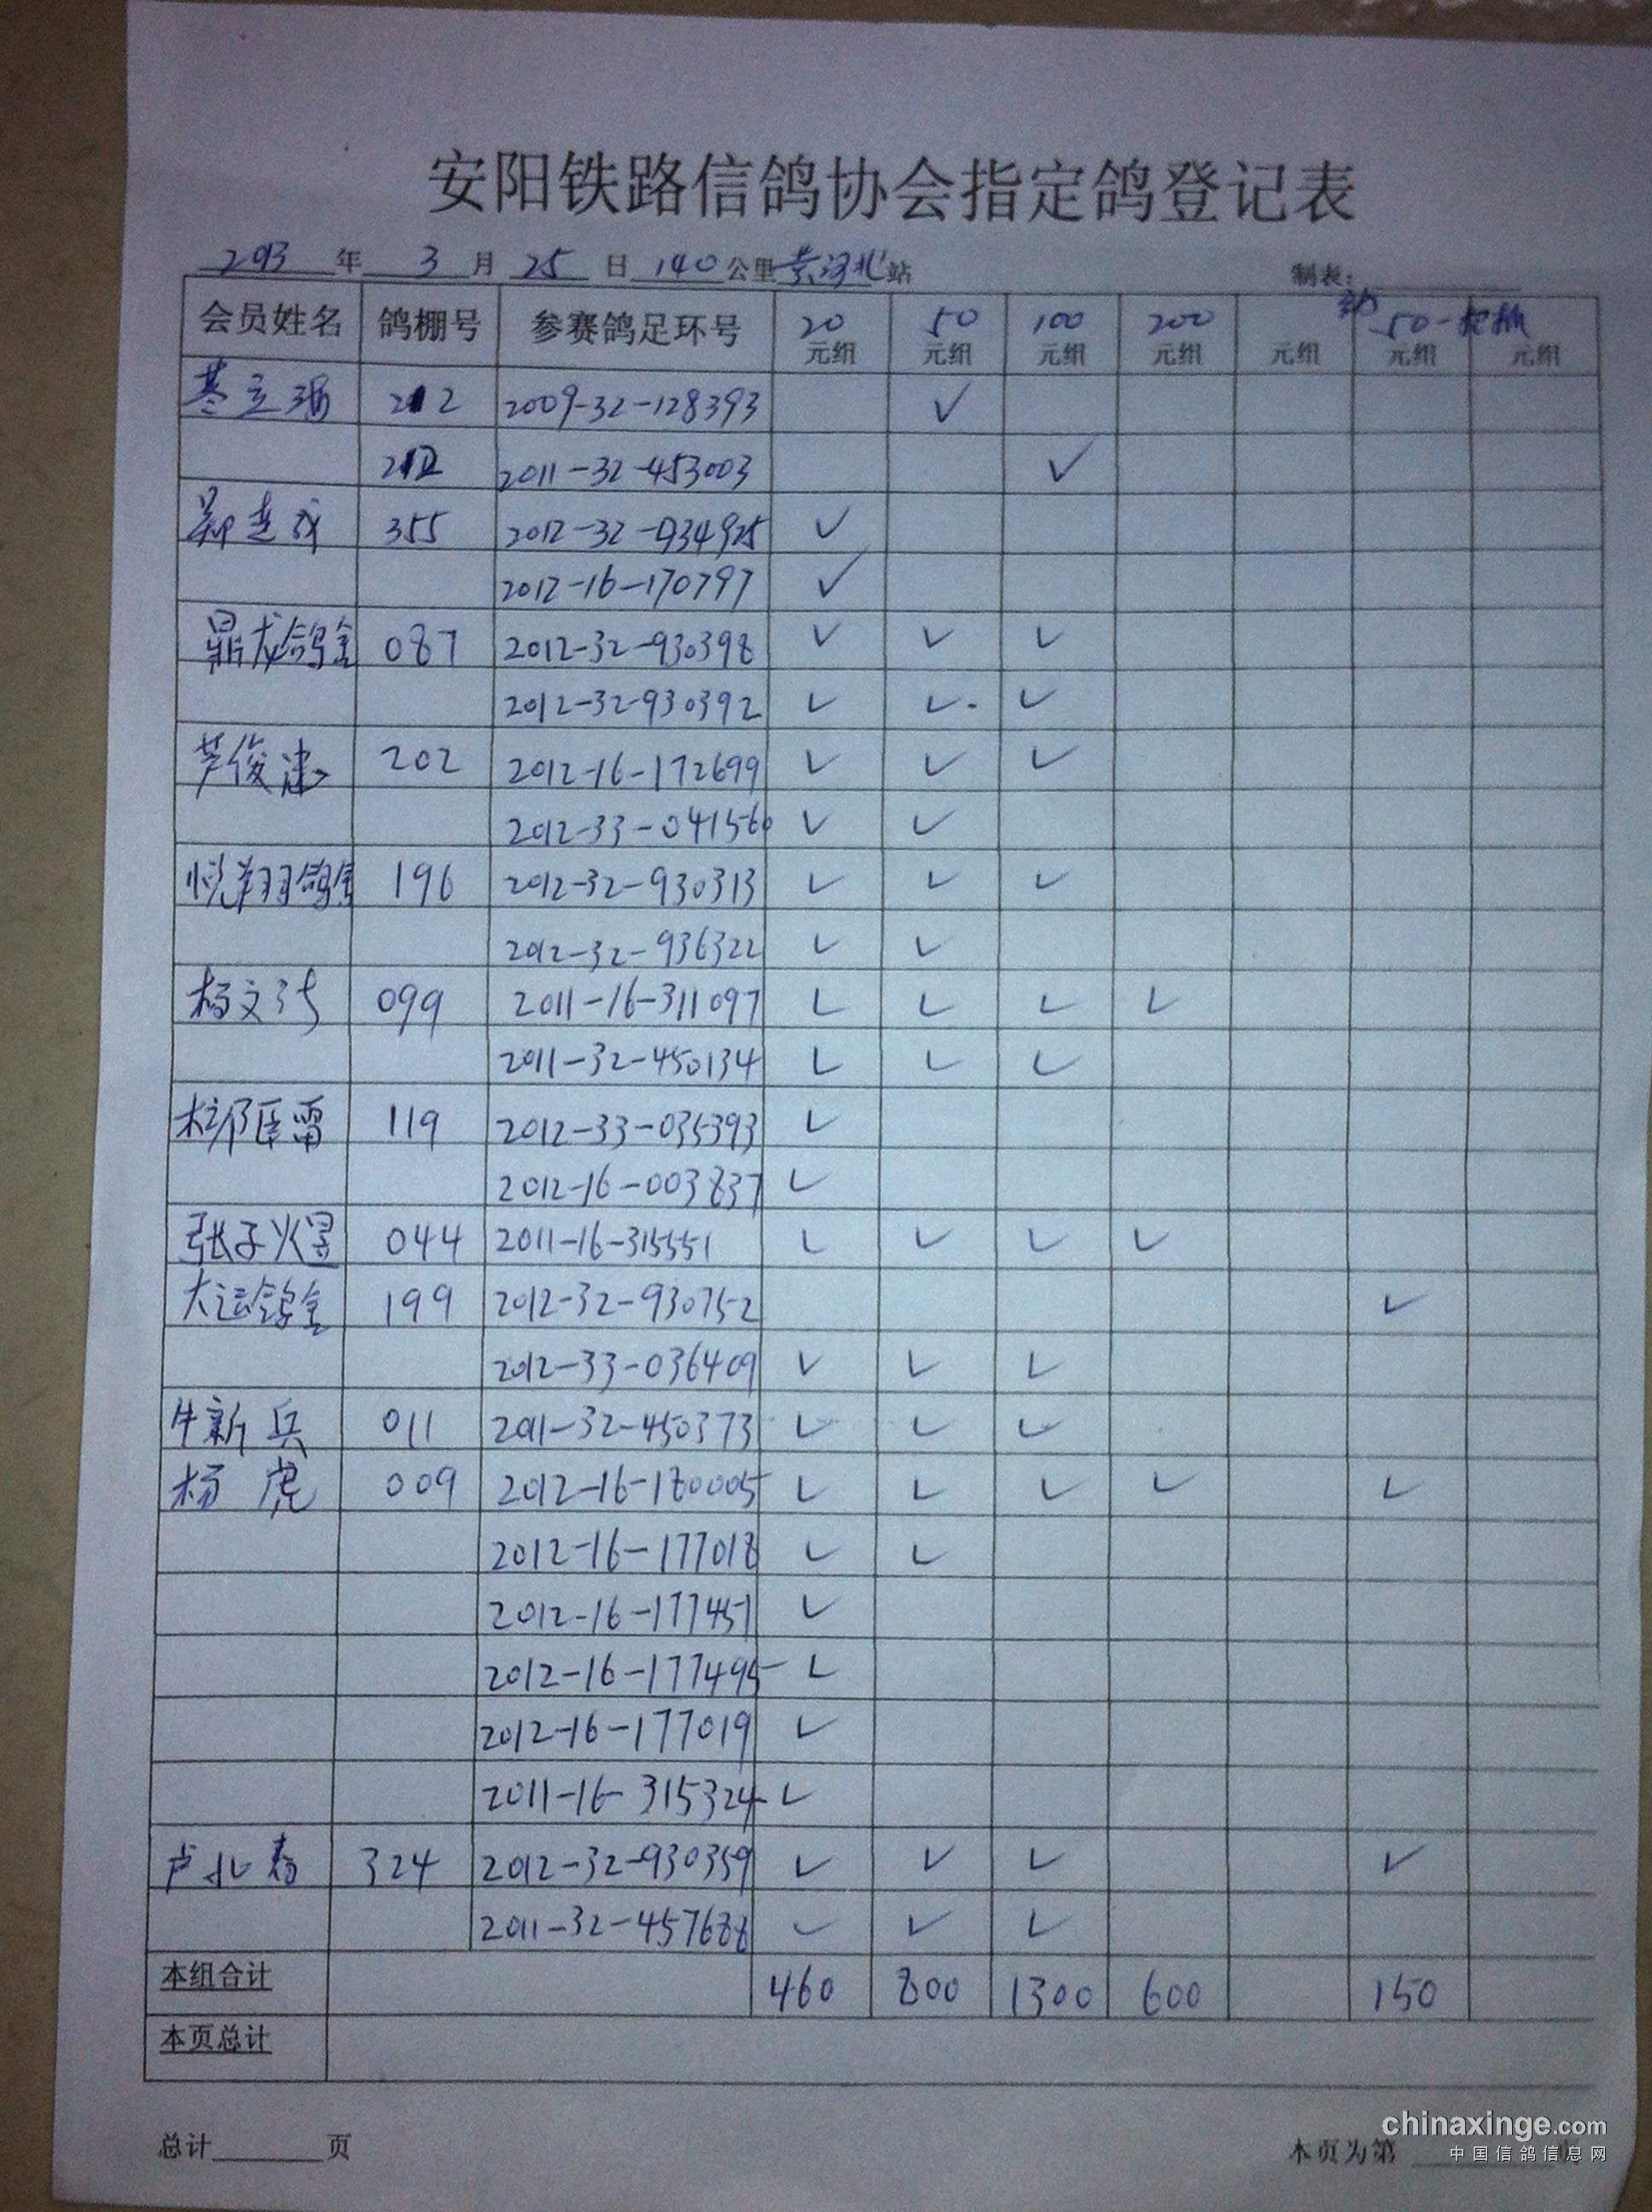 安阳铁路信鸽协会指定鸽登记表
2013年 3月 25日 140公里黄河北站 制表:
会员姓名 鸽棚号 参赛鸽足环号 20元组 50元组 100元组 200元组 元组 50元组 元组
212 2009-32-128393 ✓
212 2011-32-453003 ✓
355 2012-32-934925 ✓
2012-16-170797 ✓
鼎龙鸽舍 087 2012-32-930398 ✓ ✓ ✓
2012-32-930392 ✓ ✓ ✓
芦俊 202 2012-16-172699 ✓ ✓ ✓
2012-33-041560 ✓ ✓
悦翔鸽舍 196 2012-32-930313 ✓ ✓ ✓
2012-32-936322 ✓ ✓
杨文 099 2011-16-311097 ✓ ✓ ✓ ✓
2011-32-450134 ✓ ✓ ✓
119 2012-33-035393 ✓
2012-16-003837 ✓
张子煜 044 2011-16-315551 ✓ ✓ ✓ ✓
大运鸽舍 199 2012-32-930752 ✓
2012-33-036409 ✓ ✓ ✓
牛新兵 011 2011-32-450373 ✓ ✓ ✓
杨虎 009 2012-16-180005 ✓ ✓ ✓ ✓ ✓
2012-16-177018 ✓ ✓
2012-16-177451 ✓
2012-16-177495 ✓
2012-16-177019 ✓
2011-16-315324 ✓
卢北春 324 2012-32-930359 ✓ ✓ ✓ ✓
2011-32-457688 ✓ ✓ ✓
本组合计 460 800 1300 600 150
本页总计
总计 页 本页为第 页
chinaxinge.com
中国信鸽信息网